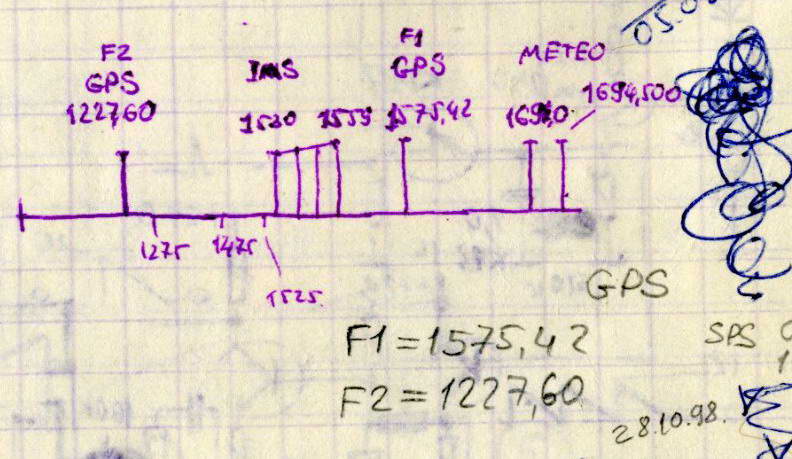 F2
GPS
1227,60
1559
F1
GPS
1575,42
METEO
1694,500
1275
1475
1525
GPS
F1=1575,42
F2=1227,60
SPS
28.10.98.